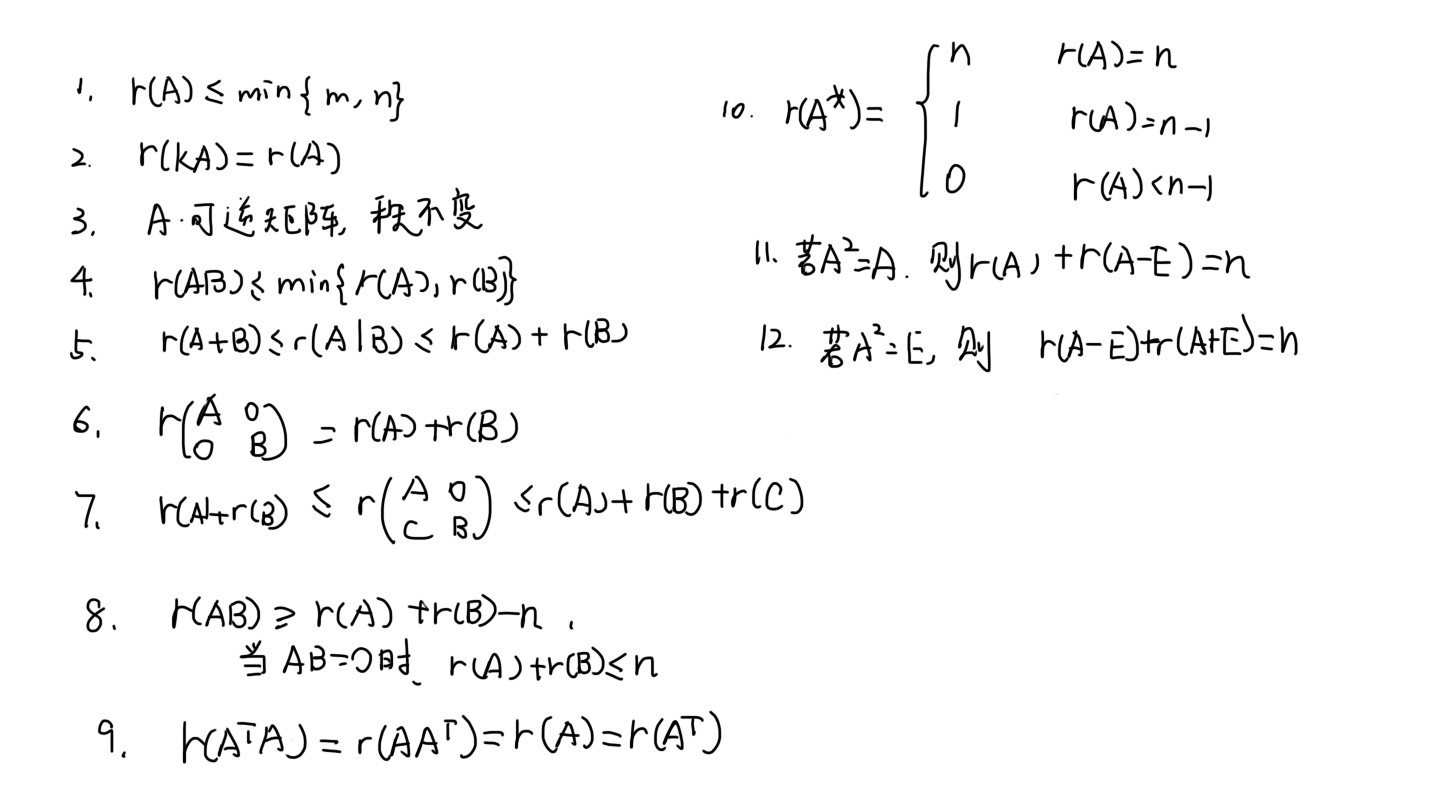 1. r(A) ≤ min{m, n}
2. r(kA) = r(A)
3. A·可逆矩阵, 秩不变
4. r(AB) ≤ min{r(A), r(B)}
5. r(A+B) ≤ r(A|B) ≤ r(A) + r(B)
6. r(A 0
0 B) = r(A)+r(B)
7. r(A)+r(B) ≤ r(A 0
C B) ≤ r(A)+r(B)+r(C)
8. r(AB) ≥ r(A)+r(B)-n.
当AB=0时, r(A)+r(B) ≤ n
9. r(AᵀA) = r(AAᵀ) = r(A) = r(Aᵀ)
10. r(A*) = { n r(A)=n
1 r(A)=n-1
0 r(A)<n-1
11. 若A²=A. 则r(A)+r(A-E)=n
12. 若A²=E, 则 r(A-E)+r(A+E)=n